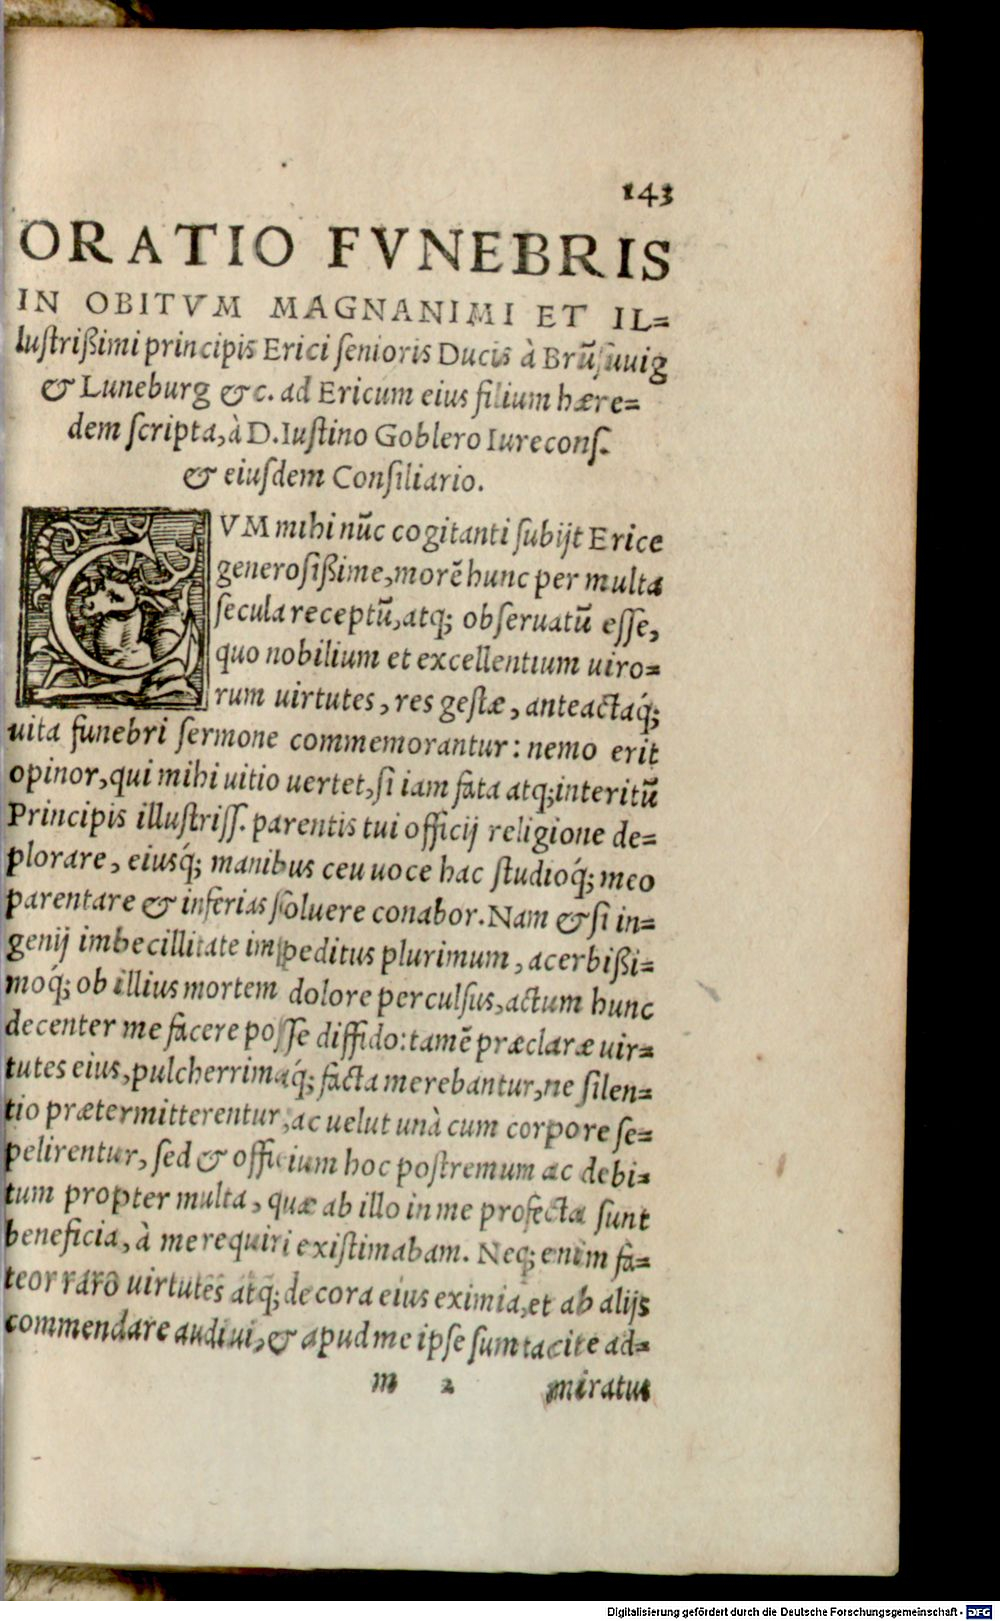 143
ORATIO FVNEBRIS
IN OBITVM MAGNANIMI ET IL=
luſtrißimi principis Erici ſenioris Ducis à Brũſuuig
& Luneburg &c. ad Ericum eius filium hære=
dem ſcripta, à D. Iuſtino Goblero Iureconſ.
& eiuſdem Conſiliario.
CVM mihi nũc cogitanti ſubijt Erice
generoſißime, morẽ hunc per multa
ſecula receptũ, atq; obſeruatũ eſſe,
quo nobilium et excellentium uiro=
rum uirtutes, res geſtæ, anteactaq́;
uita funebri ſermone commemorantur: nemo erit
opinor, qui mihi uitio uertet, ſi iam fata atq; interitũ
Principis illuſtriſſ. parentis tui officij religione de=
plorare, eiusq́; manibus ceu uoce hac ſtudioq́; meo
parentare & inferias ſoluere conabor. Nam & ſi in=
genij imbecillitate impeditus plurimum, acerbißi=
moq́; ob illius mortem dolore perculſus, actum hunc
decenter me facere poſſe diffido: tamẽ præclaræ uir=
tutes eius, pulcherrimaq́; facta merebantur, ne ſilen=
tio prætermitterentur, ac uelut unà cum corpore ſe=
pelirentur, ſed & officium hoc poſtremum ac debi=
tum propter multa, quæ ab illo in me profecta ſunt
beneficia, à me requiri exiſtimabam. Neq; enim fa=
teor raro uirtutes atq; decora eius eximia, et ab alijs
commendare audiui, & apud me ipſe ſum tacite ad=
m 2 miratus
Digitalisierung gefördert durch die Deutsche Forschungsgemeinschaft - DFG